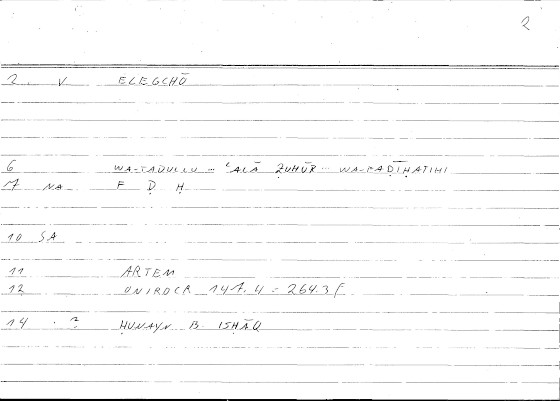 2
2. V ELEGCHŌ
6 WA-TADULLU ... ʿALĀ ẒUHŪR ... WA-FAḌĪḤATIHI
7 NA F Ḍ Ḥ
10 SA
11 ARTEM
12 ONIROCR 147.4 = 264.3 f
14 . ? ḤUNAYN B ISḤĀQ